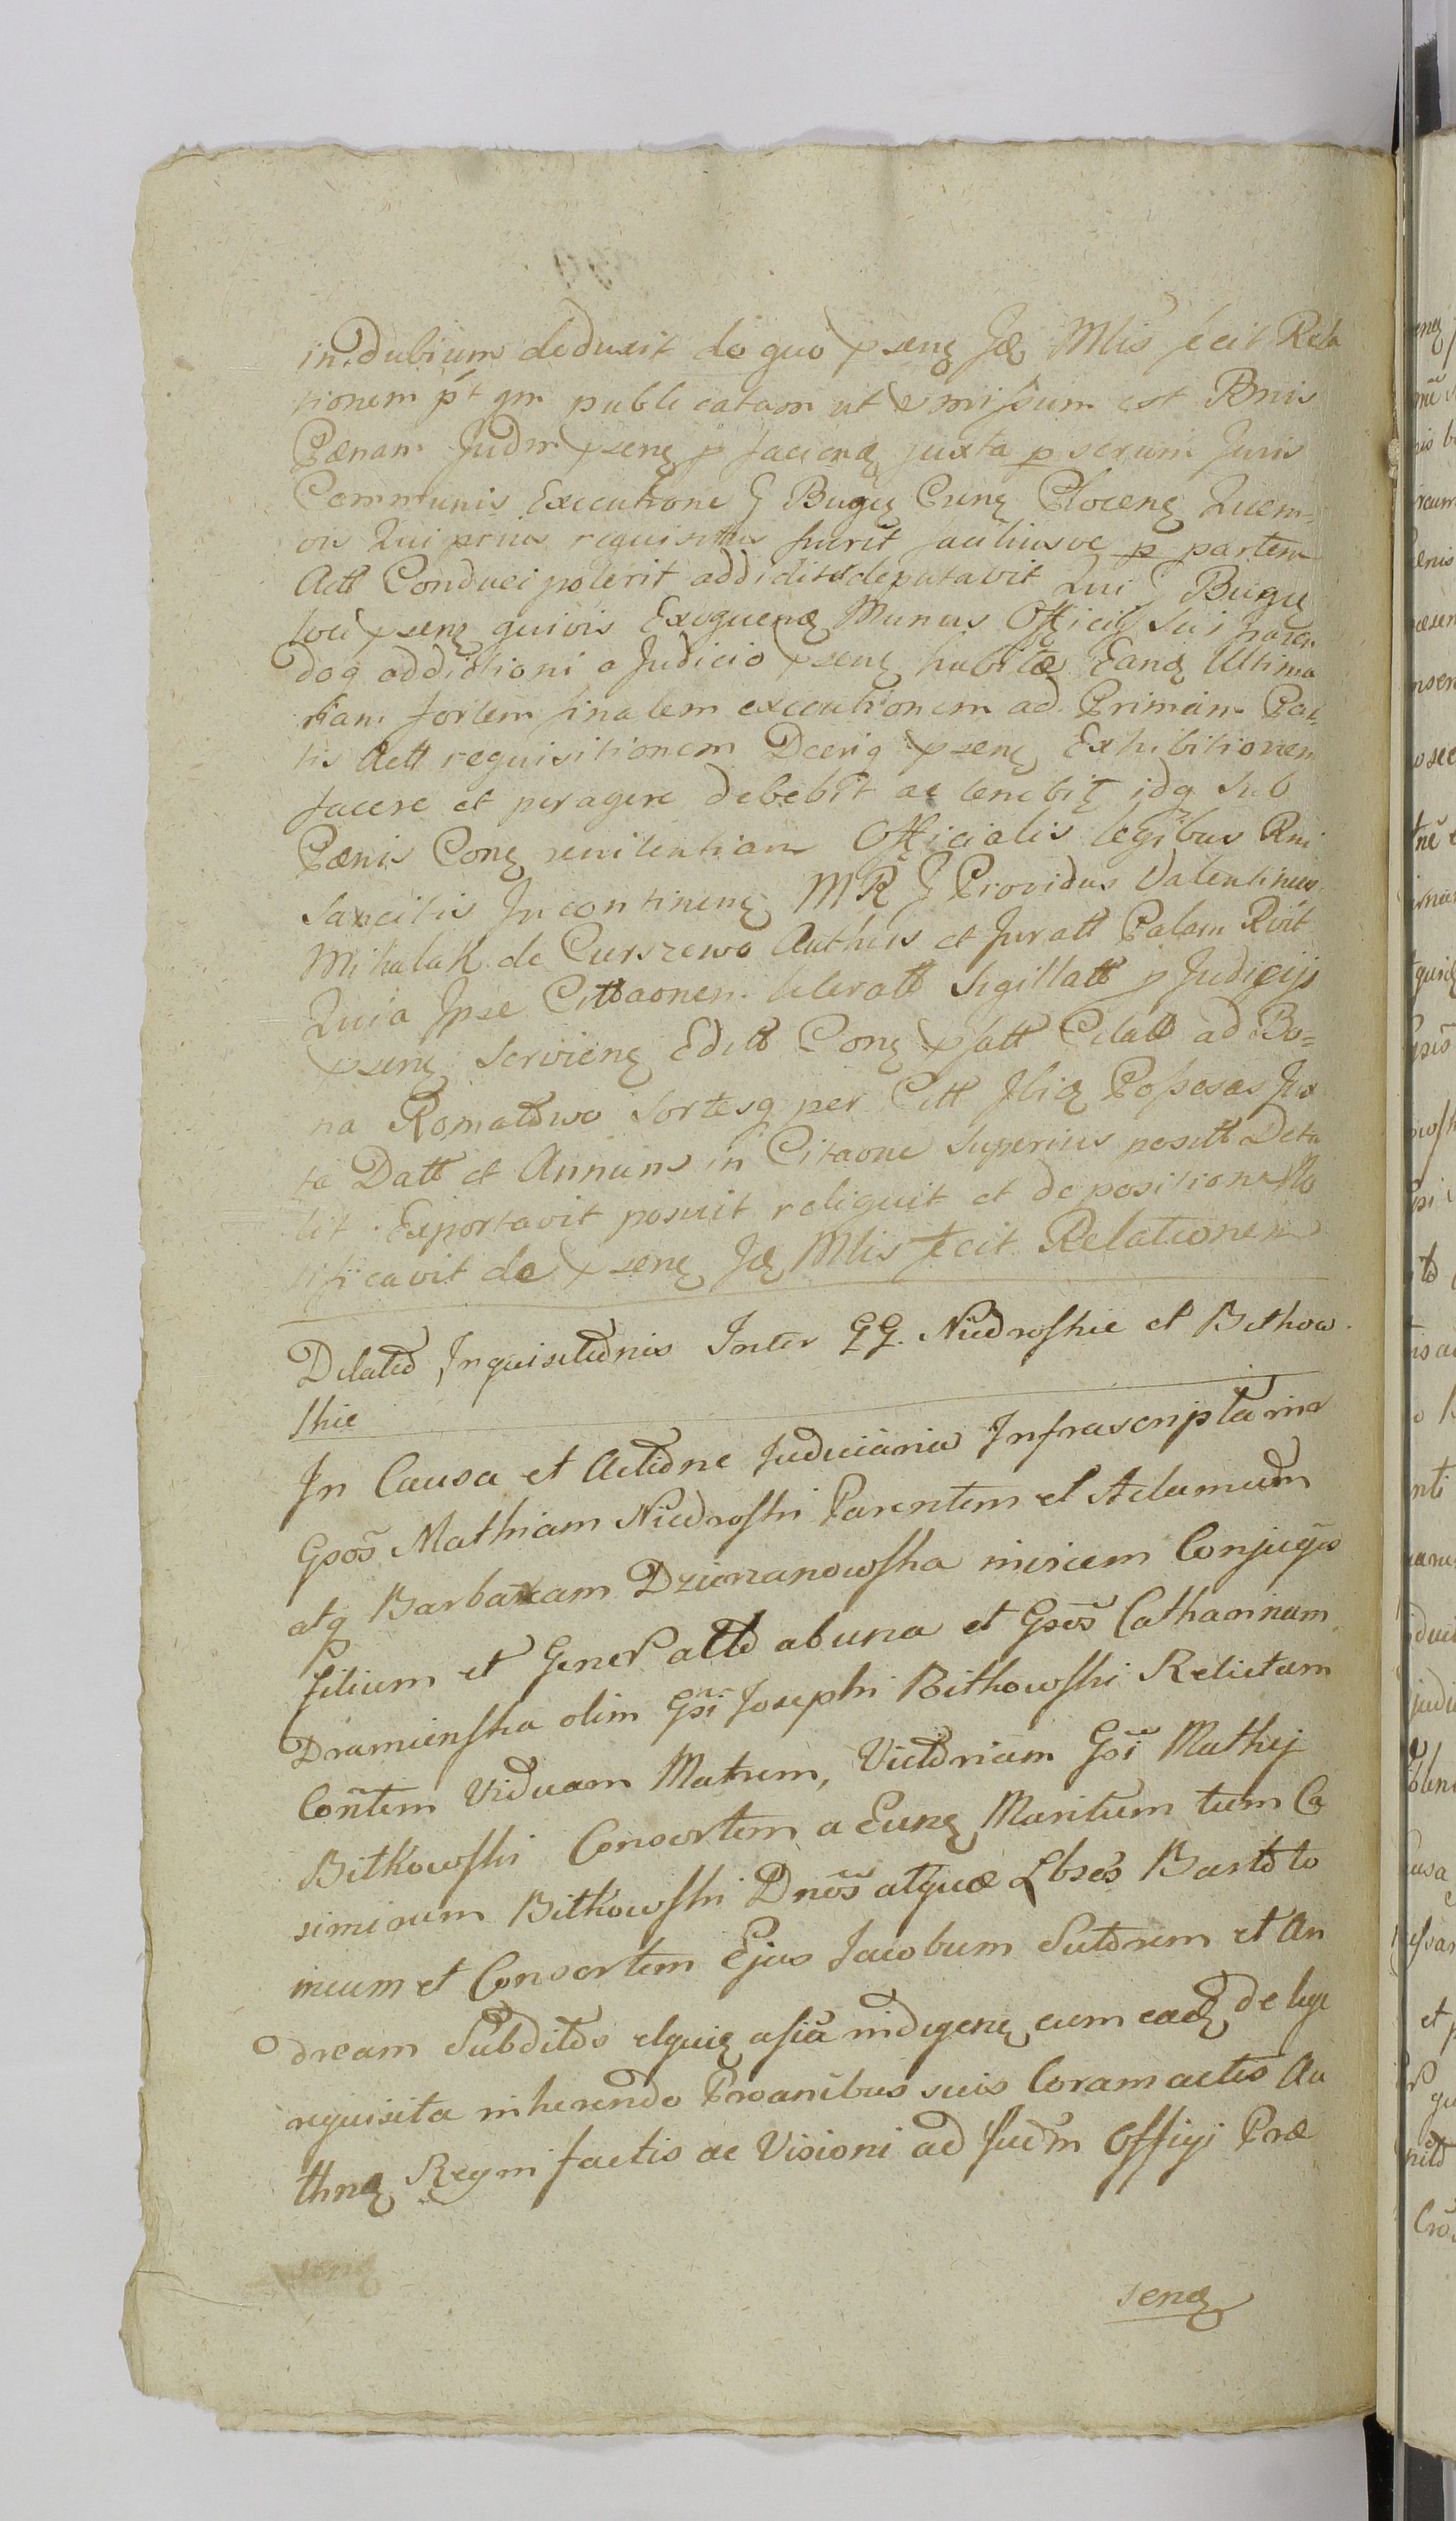 in dubium deduxit de quo psenę Jq Mlis fecit Rela
tionem pt qm publicatam ut pmissum est Rnis
Pænam Judm psenę p facienę juxta p scrum Juris
Communis Executione G Bugę Crenę Plocenę Quem=
vis Qui prius requisitus fuerit faciliusve p partem
Actt Conduci poterit addidit deputavit Qui G Bugę
loci psenę quivis Exequenæ Munus Officii Sui paren
doq addictioni a Judicio psenę habitæ Eanę Ultima
riam fortem finalem executionem ad Primam Par
tis Actt requisitionem Dcetiq psenę Exhibitionem
facere et peragere debebit ac tenebiţ idq sub
Pænis Conę renitentiam Officialis legibus Rni
Sancitis Incontinenę MR G Providus Valentinus
Mihalak de Curszewo Authus et Juratt Palam Rvit
Quia Ipse Cittaonem literatt Sigillatt p Judicijs
psenę Servienę Editt Conę psatt Citatt ad Bo=
na Romatowo Sortesq per Citt Ibiq Possesas Jux
ta Datt et Annum in Citaone Superius positt Detu
lit Exportavit posuit reliquit et depositione No
tificavit de psenę Jq Mlis fecit Relationem
Dilatio Inquisitionis Inter GG. Niedroskie et Bitkow
skie
In Causa et Actione Judiciaria Infrascripta inter
Gsos Mathiam Niedroski Parentem et Adamum
atq Barbaram Dzierzanowska invicem Conjuges
filium et Gener actto ab una et Gsos Catharinam
Dramienska olim Gsi Josephi Bitkowski Relictam
Contem Viduam Matrem, Victoriam Gsi Mathej
Bitkowski Consortem a Eunę Maritum tum Ca
simirum Bitkowski Dnos atquæ Lbsos Bartolo
meum et Consortem Ejus Jacobum Sutorem et An
dream Subditos elquię asia indigenę cum eadę de lege
requisita inherendo Proanibus suis Coram actis Au
thnę Regni factis ac Visioni ad Judm Offigi Præ
senę